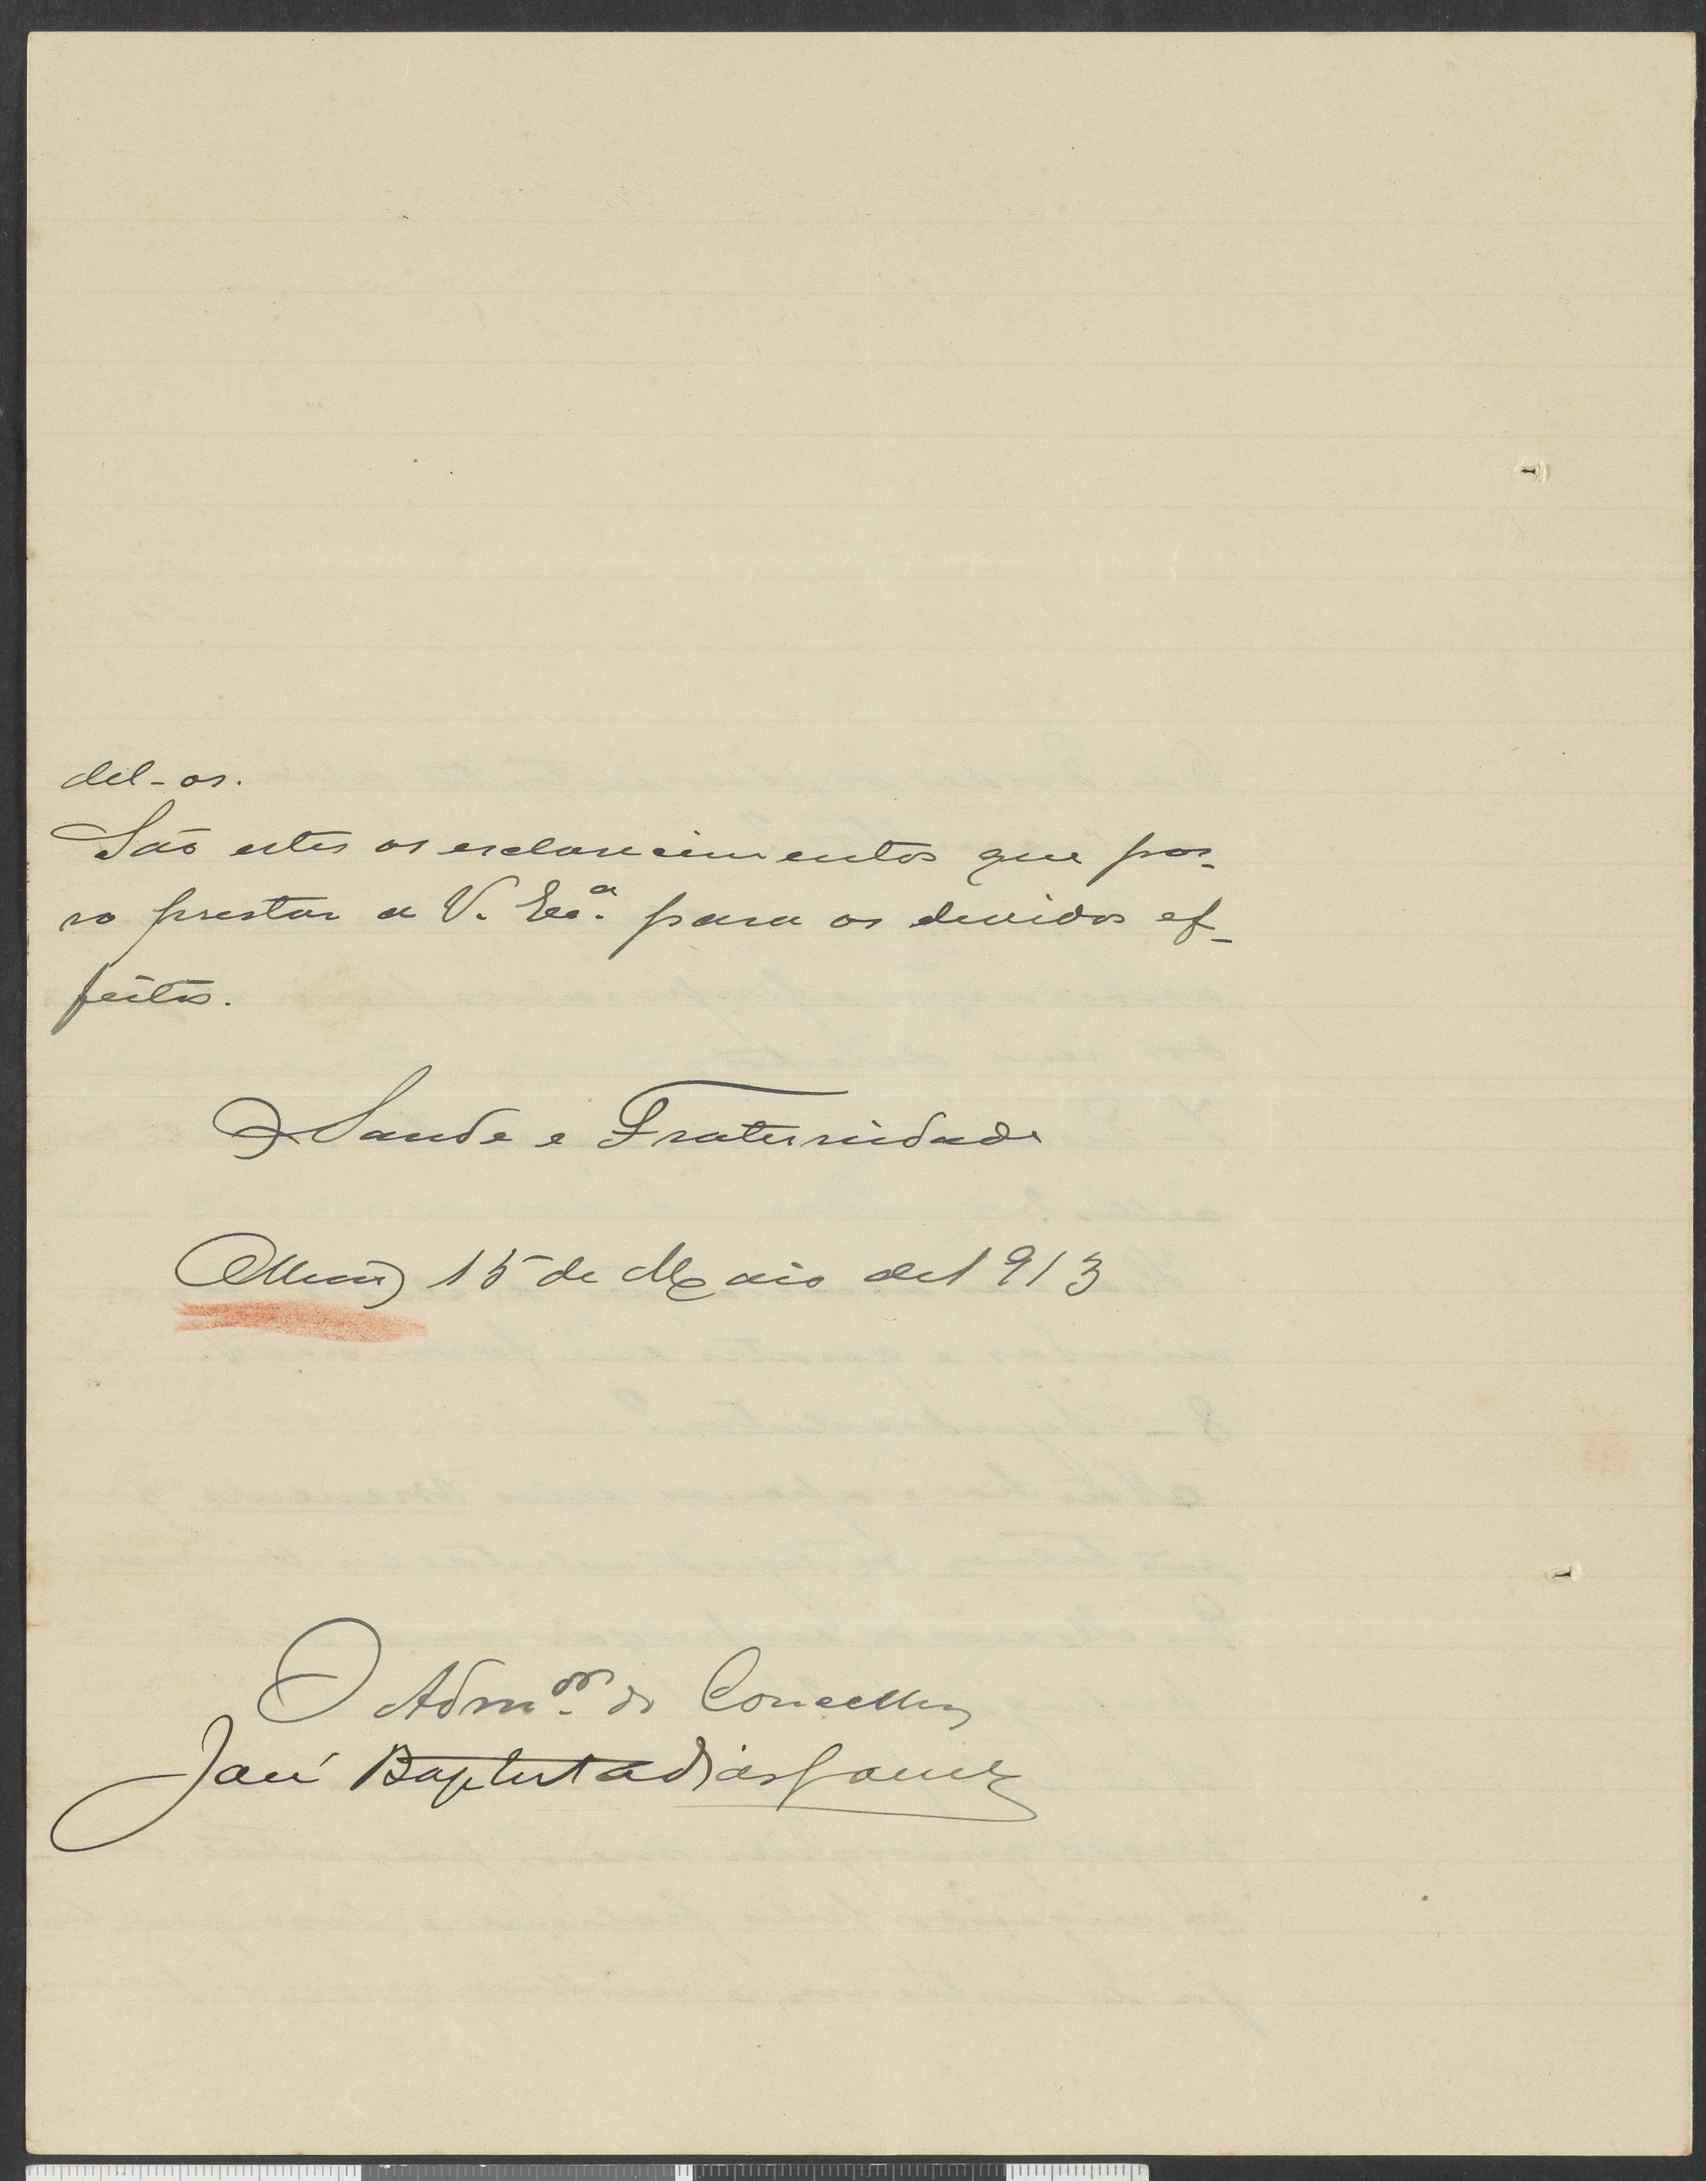 del-os.
São estes os esclarecimentos que pos-
so prestar a V. Ex.ª para os devidos ef-
feitos.
Saude e Fraternidade
15 de Maio de 1913
O Adm.or do Concelho
José Baptista Dias Gomes